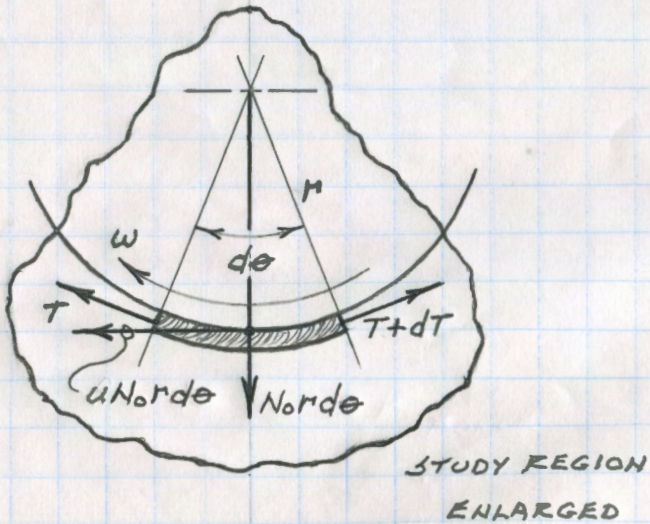 r
ω
dθ
T
T+dT
uNordθ
Nordθ
STUDY REGION
ENLARGED